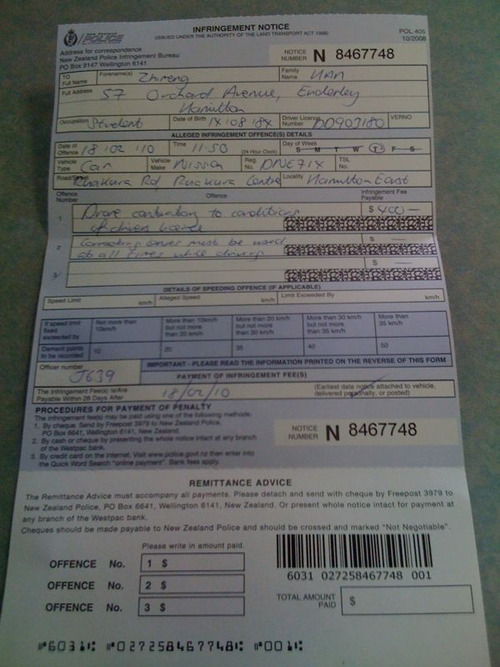 INFRINGEMENT NOTICE
(ISSUED UNDER THE AUTHORITY OF THE LAND TRANSPORT ACT 1998)
POL 405
10/2008
POLICE
Address for correspondence
New Zealand Police Infringement Bureau
PO Box 9147 Wellington 6141
NOTICE NUMBER N 8467748
TO Full Name
Forename(s) Zhireng
Family Name HAN
Full Address 57 Orchard Avenue, Enderley
Hamilton
Occupation Student
Date of Birth 14 108 184
Driver Licence Number DD903180
VERNO
ALLEGED INFRINGEMENT OFFENCE(S) DETAILS
Date of Offence 18 102 110
Time 11:50
(24 Hour Clock)
Day of Week
S M T W T F S
Vehicle Type Car
Vehicle Make Nissan
Reg. No. DNE71X
TSL No.
Road/Street Ruakura Rd Ruakura Centre
Locality Hamilton East
Offence Number
Offence
Infringement Fee Payable
1 Drove contrary to conditions
of driver licence
$ 400 —
2 Correcting lenses must be worn
at all times while driving
$ —
3
$ —
DETAILS OF SPEEDING OFFENCE (IF APPLICABLE)
Speed Limit km/h
Alleged Speed km/h
Limit Exceeded By km/h
If speed limit exceeded by
Not more than 10km/h
More than 10km/h but not more than 20 km/h
More than 20 km/h but not more than 30 km/h
More than 30 km/h but not more than 35 km/h
More than 35 km/h
Demerit points to be recorded
10
20
35
40
50
Officer number J639
IMPORTANT - PLEASE READ THE INFORMATION PRINTED ON THE REVERSE OF THIS FORM
PAYMENT OF INFRINGEMENT FEE(S)
The Infringement Fee(s) is/are Payable Within 28 Days After
18/02/10
(Earliest date notice attached to vehicle, delivered personally, or posted)
PROCEDURES FOR PAYMENT OF PENALTY
The infringement fee(s) may be paid using one of the following methods:
1. By cheque. Send by Freepost 3979 to New Zealand Police,
PO Box 6641, Wellington 6141, New Zealand.
2. By cash or cheque by presenting the whole notice intact at any branch
of the Westpac bank.
3. By credit card on the Internet. Visit www.police.govt.nz then enter into
the Quick Word Search "online payment". Bank fees apply.
NOTICE NUMBER N 8467748
REMITTANCE ADVICE
The Remittance Advice must accompany all payments. Please detach and send with cheque by Freepost 3979 to
New Zealand Police, PO Box 6641, Wellington 6141, New Zealand. Or present whole notice intact for payment at
any branch of the Westpac bank.
Cheques should be made payable to New Zealand Police and should be crossed and marked "Not Negotiable".
Please write in amount paid.
OFFENCE No. 1 $
OFFENCE No. 2 $
OFFENCE No. 3 $
6031 027258467748 001
TOTAL AMOUNT PAID $
6031 027258467748 001